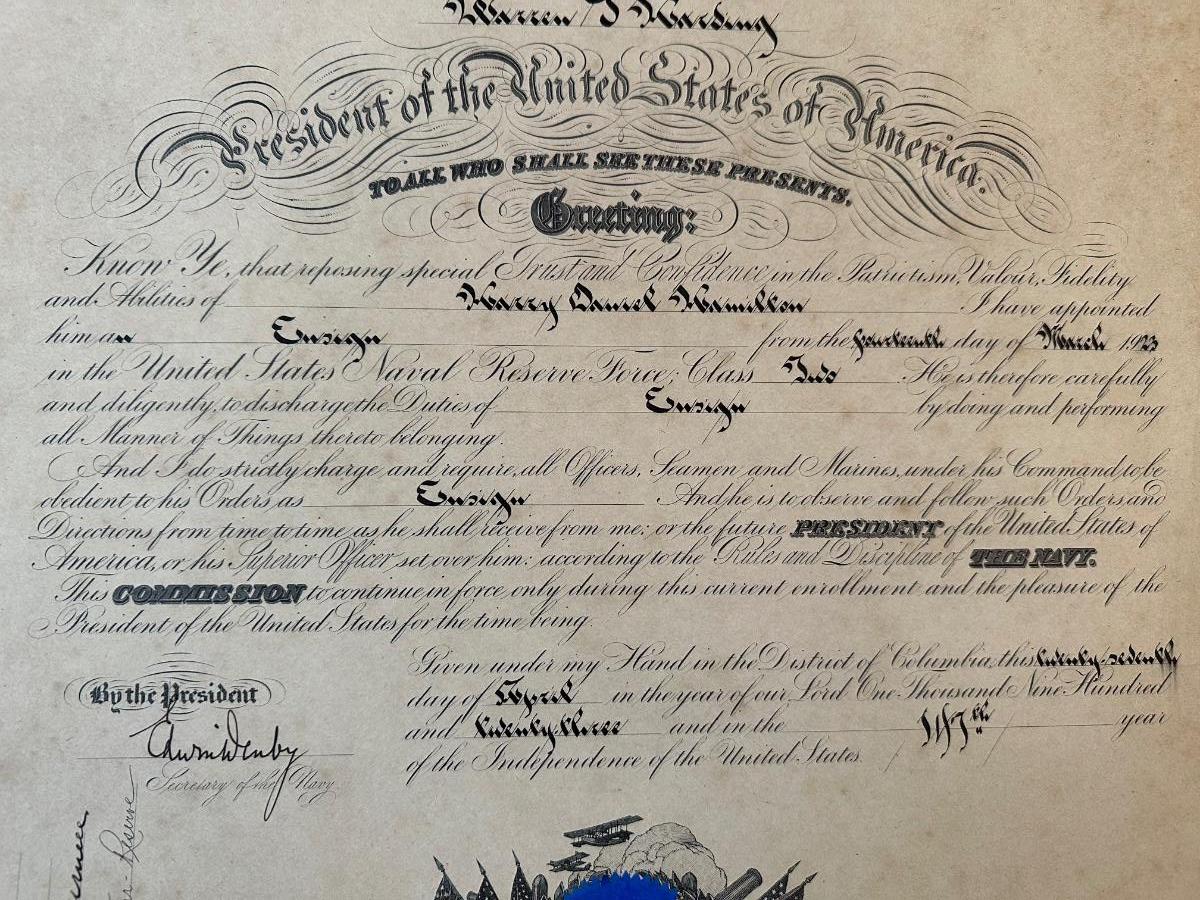 Warren G Harding
President of the United States of America.
TO ALL WHO SHALL SEE THESE PRESENTS.
Greeting:
Know Ye, that reposing special Trust and Confidence in the Patriotism, Valour, Fidelity
and Abilities of Harry Daniel Hamilton I have appointed
him an Ensign from the fourteenth day of March 1923
in the United States Naval Reserve Force, Class Two He is therefore, carefully
and diligently, to discharge the Duties of Ensign by doing and performing
all Manner of Things thereto belonging.
And I do strictly charge and require, all Officers, Seamen and Marines, under his Command to be
obedient to his Orders as Ensign And he is to observe and follow such Orders and
Directions from time to time as he shall receive from me: or the future PRESIDENT of the United States of
America, or his Superior Officer set over him: according to the Rules and Discipline of THE NAVY.
This COMMISSION to continue in force only during this current enrollment and the pleasure of the
President of the United States for the time being.
Given under my Hand in the District of Columbia, this twenty-seventh
day of April in the year of our Lord One Thousand Nine Hundred
and twenty-three and in the 147th year
of the Independence of the United States.
By the President
Edwin Denby
Secretary of the Navy
Reserve